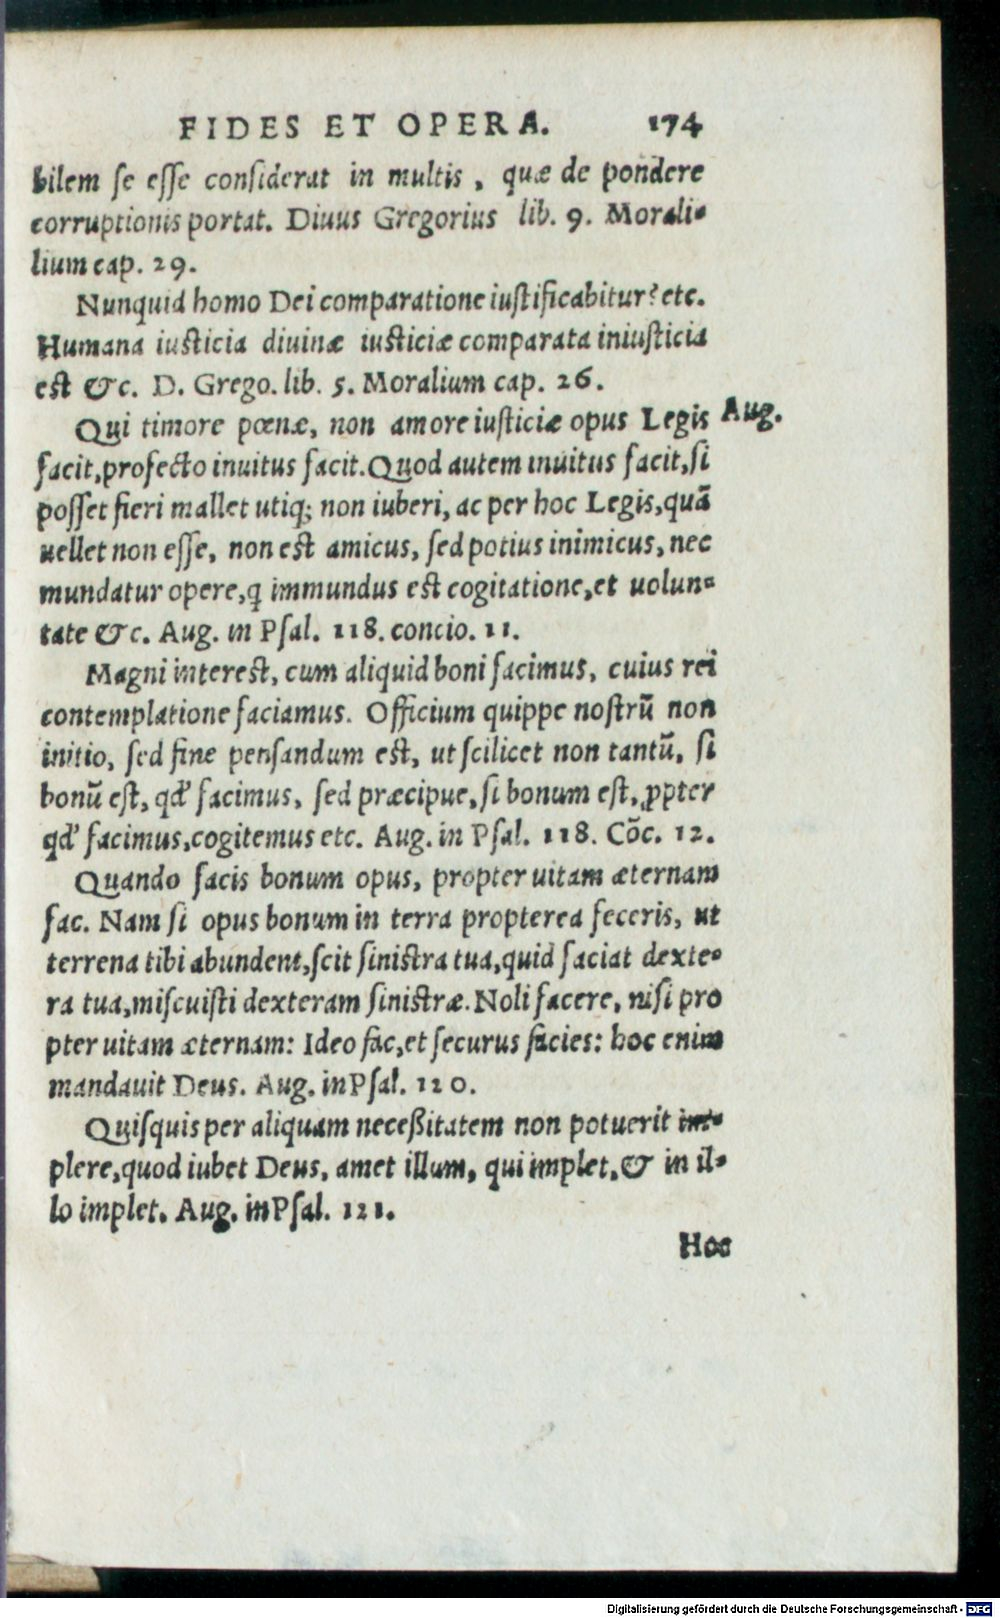 FIDES ET OPERA. 174
bilem se esse considerat in multis, quæ de pondere
corruptionis portat. Diuus Gregorius lib. 9. Morali-
lium cap. 29.
Nunquid homo Dei comparatione iustificabitur? etc.
Humana iusticia diuinæ iusticiæ comparata iniusticia
est &c. D. Grego. lib. 5. Moralium cap. 26.
Qui timore pœnæ, non amore iusticiæ opus Legis Aug.
facit, profecto inuitus facit. Quod autem inuitus facit, si
posset fieri mallet utiq; non iuberi, ac per hoc Legis, quã
uellet non esse, non est amicus, sed potius inimicus, nec
mundatur opere, q immundus est cogitatione, et uolun-
tate &c. Aug. in Psal. 118. concio. 11.
Magni interest, cum aliquid boni facimus, cuius rei
contemplatione faciamus. Officium quippe nostrũ non
initio, sed fine pensandum est, ut scilicet non tantũ, si
bonũ est, qd' facimus, sed præcipue, si bonum est, ꝓpter
qd' facimus, cogitemus etc. Aug. in Psal. 118. Cõc. 12.
Quando facis bonum opus, propter uitam æternam
fac. Nam si opus bonum in terra propterea feceris, ut
terrena tibi abundent, scit sinistra tua, quid faciat dexte-
ra tua, miscuisti dexteram sinistræ. Noli facere, nisi pro
pter uitam æternam: Ideo fac, et securus facies: hoc enim
mandauit Deus. Aug. in Psal. 120.
Quisquis per aliquam neceßitatem non potuerit im-
plere, quod iubet Deus, amet illum, qui implet, & in il-
lo implet. Aug. in Psal. 121.
Hoc
Digitalisierung gefördert durch die Deutsche Forschungsgemeinschaft - DFG